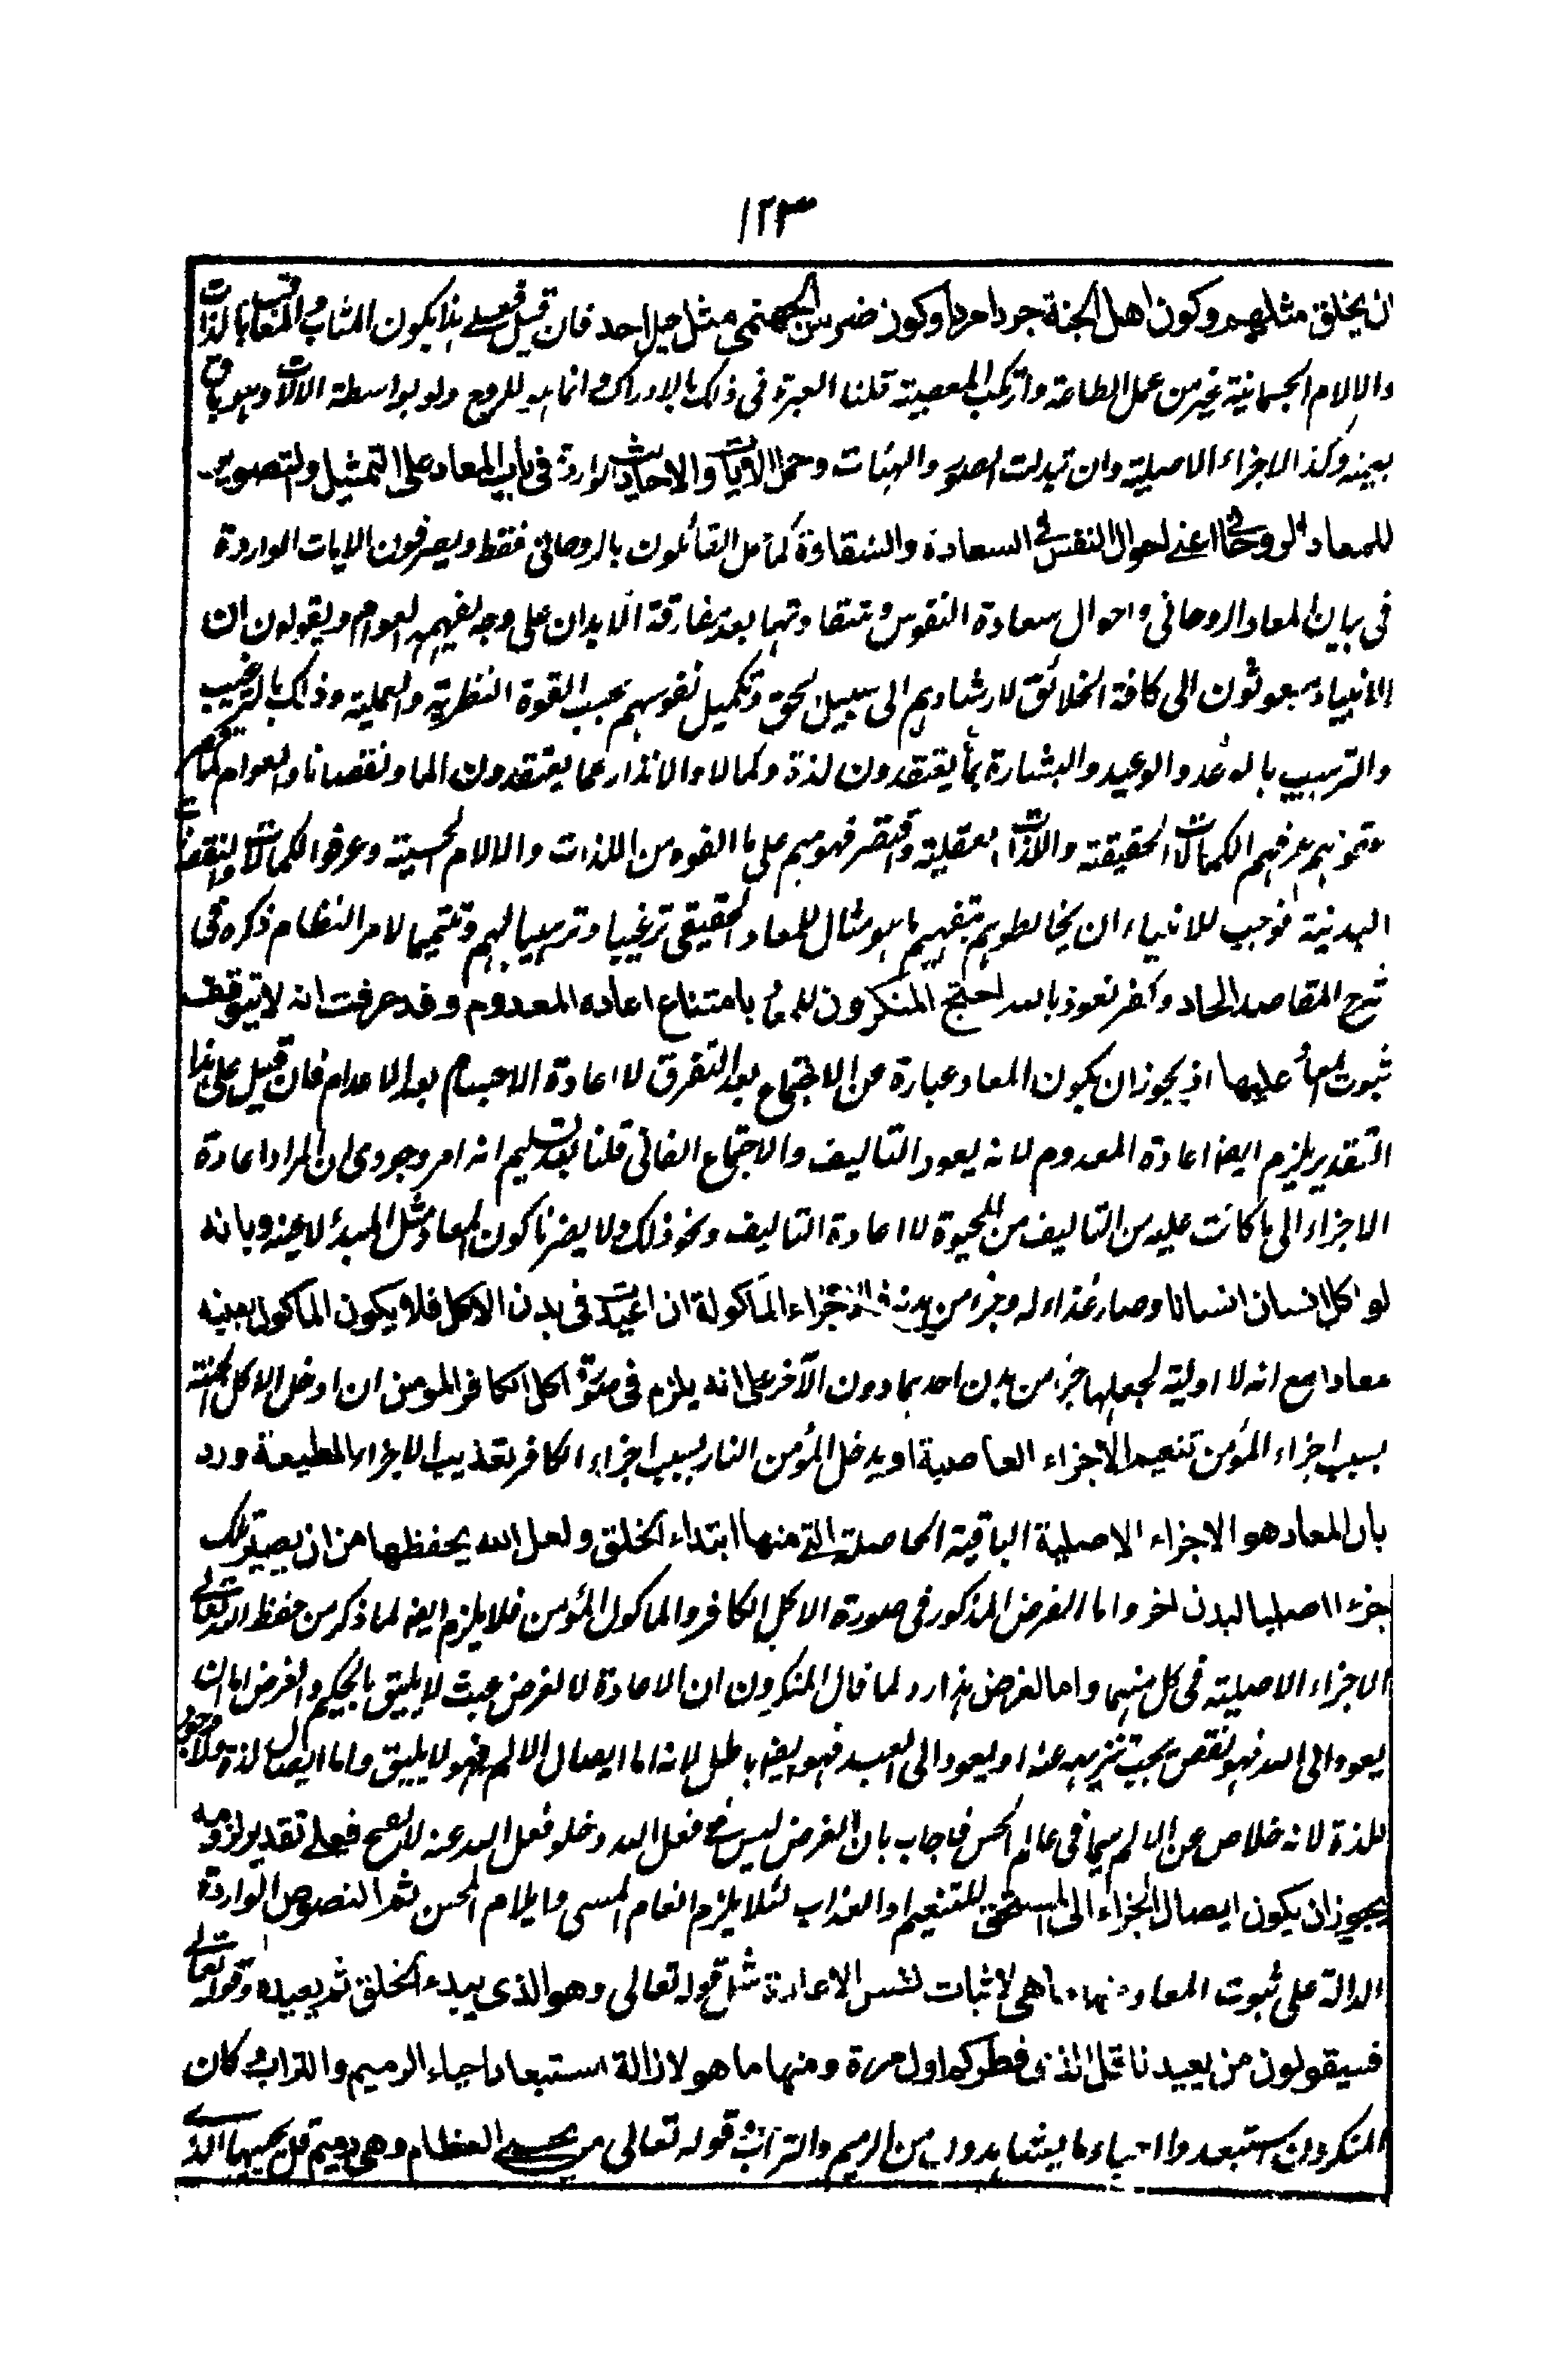 ١٢٣
ان يخلق مثلهم وكون اهل الجنة جردا مردا وكون ضرس الجهنمي مثل جبل احد فان قيل فعلى هذا يكون المثاب والمعاقب باللذات
والالام الجسمانية غير من عمل الطاعة وارتكب المعصية قلنا العبرة في ذلك بالادراك وانما هو للروح ولو بواسطة الالات وهو باق
بعينه وكذا الاجزاء الاصلية وان تبدلت الصور والهئات وحمل الايات والاحاديث الواردة في باب المعاد على التمثيل والتصوير
للمعاد الروحاني اعني لحوال النفس في السعادة والشقاوة كما عل القائلون بالروحاني فقط ويصرفون الايات الواردة
في بيان المعاد الروحاني واحوال سعادة النفوس وشقاوتها بعد مفارقة الابدان على وجه يفهمه العوام ويقولون ان
الانبياء مبعوثون الى كافة الخلائق لارشادهم الى سبيل الحق وتكميل نفوسهم بحسب القوة النظرية والعملية وذلك بالترغيب
والترهيب بالوعد والوعيد والبشارة بما يعتقدون لذة وكمالا والانذار عما يعتقدون الما ونقصانا والعوام
عرفهم الكمالات الحقيقية واللذات العقلية واقتصر فهومهم على ما الفوه من اللذات والالام الحسية وعرفوا الكمالات والنقصانات
البدنية فوجب للانبياء ان يخاطبوهم بتفهيم ما هو مثال للمعاد الحقيقي ترغيبا وترهيبا لهم وتتميما لامر النظام ذكره في
شرح المقاصد الحاد وكفر نعوذ بالله احتج المنكرون للمعاد بامتناع اعاده المعدوم وقد عرفت انه لا يتوقف
ثبوت المعاد عليها اذ يجوز ان يكون المعاد عبارة عن الاجتماع بعد التفرق لا اعادة الاجسام بعد الاعدام فان قيل على هذا
التقدير يلزم ايضا اعادة المعدوم لانه يعود التاليف والاجتماع الفاني قلنا بعد تسليم انه امر وجودي ان المراد اعادة
الاجزاء الى ما كانت عليه من التاليف من الحيوة لا اعادة التاليف ونحو ذلك ولا يضرنا كون المعاد مثل المبدء لا عينه وبانه
لو اكل انسان انسانا وصار غذاء له وجزء من بدنه فالاجزاء المأكولة ان اعيدت في بدن الاكل فلا يكون الماكول بعينه
معادا مع انه لا اولية لجعلها جزء من بدن احدهما دون الآخر على انه يلزم في صورة اكل الكافر المومن ان ادخل الاكل الجنة
بسبب اجزاء المؤمن تنعيم الاجزاء العاصية او يدخل المؤمن النار بسبب اجزاء الكافر تعذيب الاجزاء المطيعة ورد
بان المعاد هو الاجزاء الاصلية الباقية الحاصلة التي منها ابتداء الخلق ولعل الله يحفظها من ان يصير تلك
جزءا اصليا لبدن اخر واما الفرض المذكور في صورة الاكل الكافر والماكول المؤمن فلا يلزم ايضا لما ذكر من حفظ الله تعالى
الاجزاء الاصلية في كل منهما واما الغرض هذا رد لما قال المنكرون ان الاعادة لا لغرض عبث لا يليق بالحكيم والغرض اما ان
يعود الى الله فهو نقص يجب تنزيهه عنه او يعود الى العبد فهو ايضا باطل لانه اما ايصال الالم فهو لا يليق واما ايصال لذة ولا وجود
للذة لانه خلاص عن الالم سيما في عالم الحس فاجاب بان الغرض ليس في فعل الله وخلو فعل الله عنه لا يصح فعلى تقدير لزومه
يجوز ان يكون ايصال الجزاء الى المستحق للتنعيم او العذاب لئلا يلزم انعام المسى وايلام المحسن ثم النصوص الواردة
الدالة على ثبوت المعاد منها ما هي لاثبات نفس الاعادة مثل قوله تعالى وهو الذى يبدء الخلق ثم يعيده وقوله تعالى
فسيقولون من يعيدنا قل الذى فطركم اول مرة ومنها ما هو لازالة استبعاد احياء الرميم والتراب كان
المنكرون استبعدوا احياء ما يشاهدون من الرميم والتراب قوله تعالى من يحيي العظام وهى رميم قل يحييها الذي